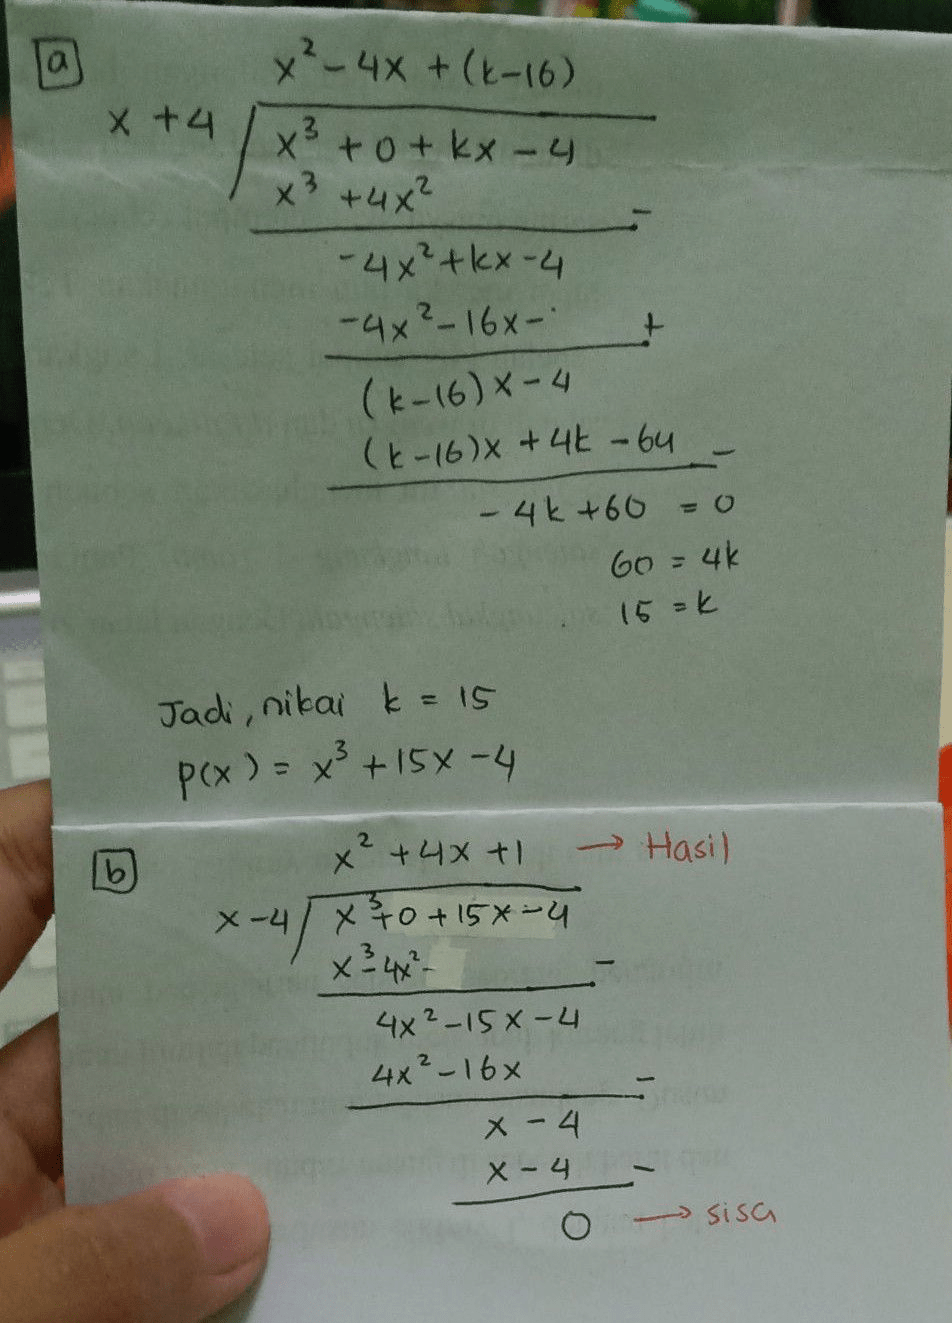 a
x² - 4x + (k-16)
x + 4
x³ + 0 + kx - 4
x³ + 4x² -
-4x² + kx - 4
-4x² - 16x - +
(k-16)x - 4
(k-16)x + 4k - 64 -
- 4k + 60 = 0
60 = 4k
15 = k
Jadi, nikai k = 15
p(x) = x³ + 15x - 4
b
x² + 4x + 1 → Hasil
x - 4
x³ + 0 + 15x - 4
x³ - 4x² - -
4x² - 15x - 4
4x² - 16x -
x - 4
x - 4 -
0 → sisa